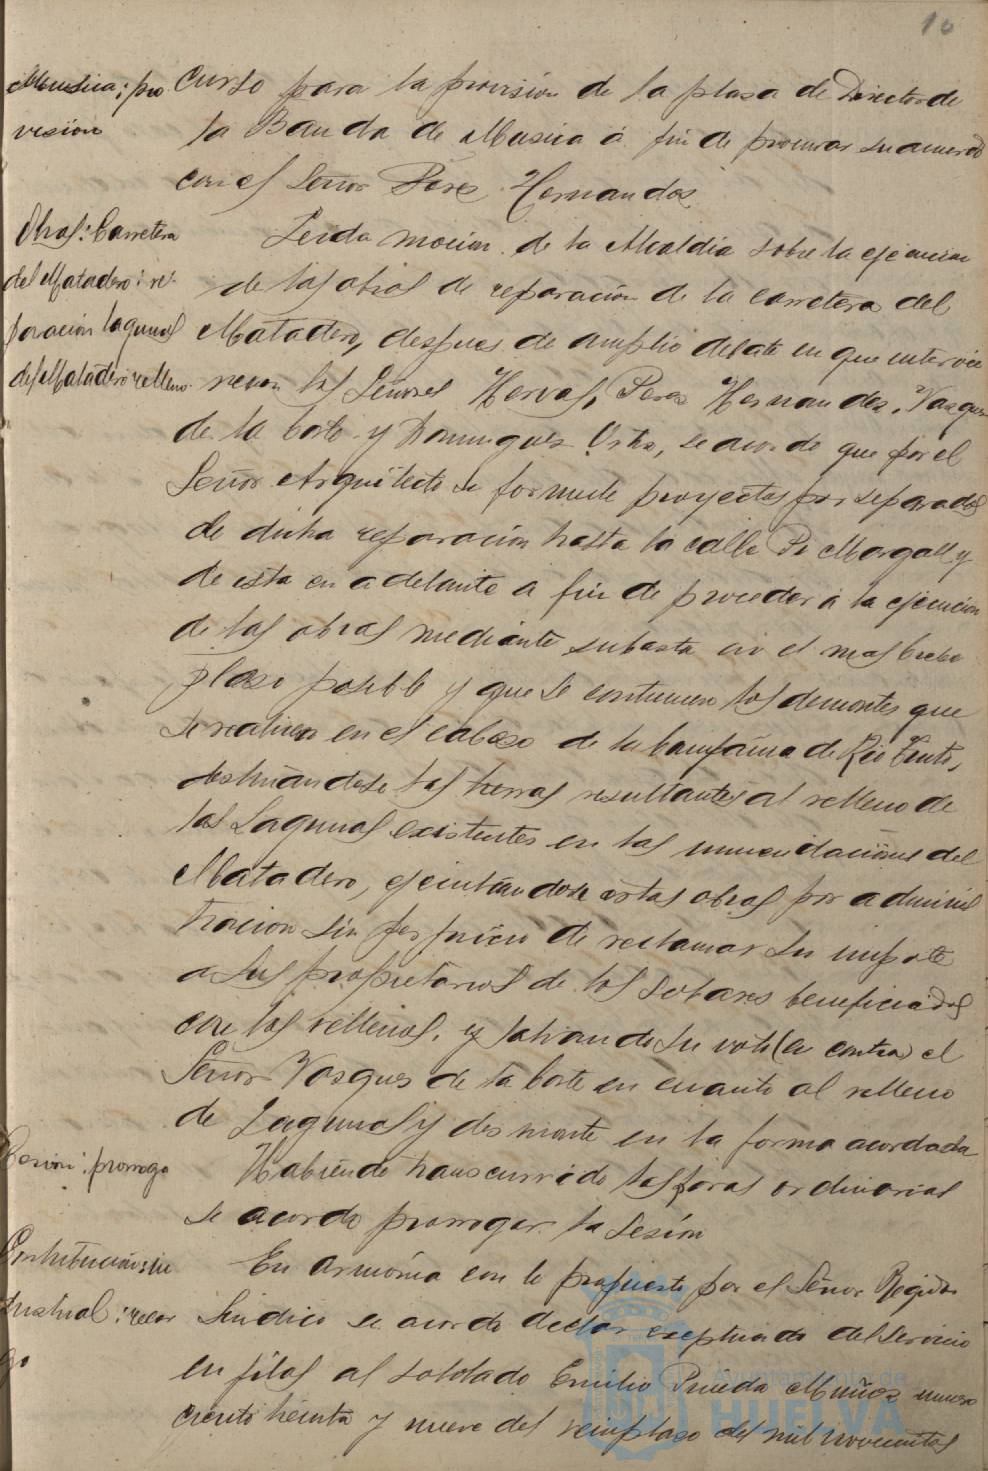 10
Musica: pro
vision
curso para la provisión de la plasa de Director de
la Banda de Musica á fin de procurar su acuerdo
con el Señor Peres Hernandes.
Obras: Carretera
del Matadero: re-
paración lagunas
del Matadero relleno.
Leida mocion de la Alcaldia sobre la ejecucion
de las obras de reparación de la carretera del
Matadero, despues de amplio debate en que intervi
nieron los Señores Hervas, Peres Hernandes, Vasques
de la Corte y Domingues Ortas, se acordo que por el
Señor Arquitecto se formule proyectos por separados
de dicha reparación hasta la calle Pi Margall y
de esta en adelante a fin de proceder á la ejecución
de las obras mediante subasta en el mas breve
plaso posible y que se continuen los demontes que
se realisen en el cabeso de la Compañia de Rio Tinto,
destinandose las tierras resultantes al relleno de
las Lagunas existentes en las inmendaciones del
Matadero, ejecutandose estas obras por adminis
tracion sin perjuicio de reclamar su importe
a los propietarios de los solares beneficiados
con los rellenos, y salvando su voto (en contra) el
Señor Vasques de la Corte en cuanto al relleno
de Lagunas y desmonte en la forma acordada
Sesion: prorroga
Habiendo transcurrido las horas ordinarias
se acordo prorrogar la Sesión
Contribución in
dustrial: recar
go
En armonia con lo propuesto por el Señor Regidor
Sindico se acordo declarar exeptuado del servicio
en filas al soldado Emilio Pineda Muños numero
ciento treinta y nueve del reemplaso del mil novecientos
Ayuntamiento de
HUELVA